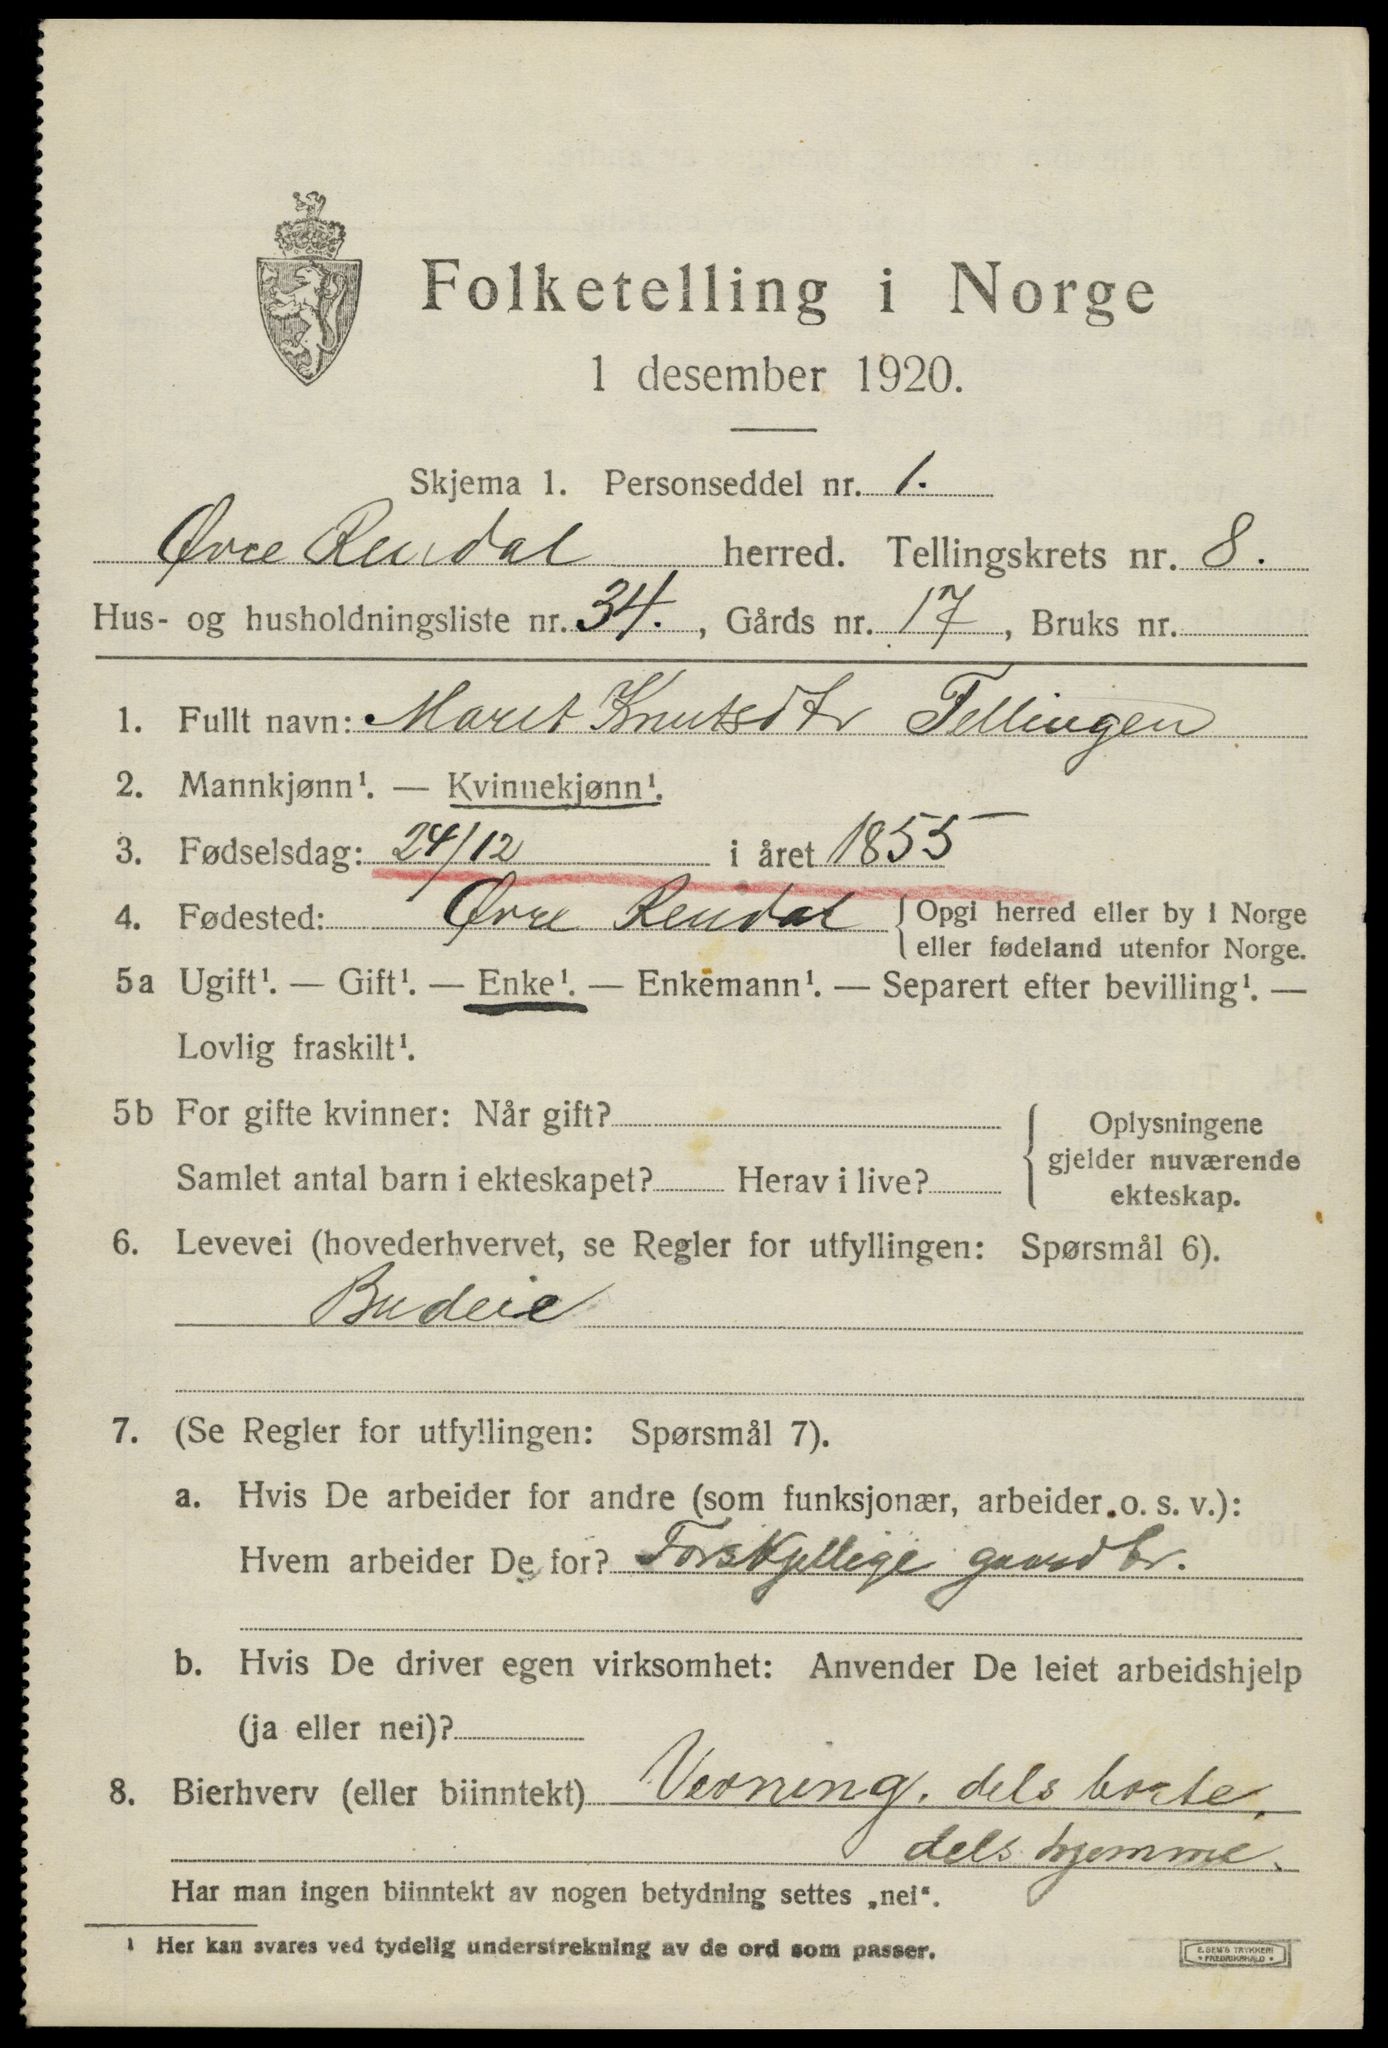 Folketelling i Norge
1 desember 1920.
Skjema 1. Personseddel nr. 1.
Øvre Rendal herred. Tellingskrets nr. 8.
Hus- og husholdningsliste nr. 34., Gårds nr. 17, Bruks nr.
1. Fullt navn: Maret Knutsdtr Fellingen
2. Mannkjønn¹. — Kvinnekjønn¹.
3. Fødselsdag: 24/12 i året 1855
4. Fødested: Øvre Rendal { Opgi herred eller by i Norge
eller fødeland utenfor Norge.
5a Ugift¹. — Gift¹. — Enke¹. — Enkemann¹. — Separert efter bevilling¹. —
Lovlig fraskilt¹.
5b For gifte kvinner: Når gift?
Samlet antal barn i ekteskapet? Herav i live?
Oplysningene
gjelder nuværende
ekteskap.
6. Levevei (hovederhvervet, se Regler for utfyllingen: Spørsmål 6).
Budeie
7. (Se Regler for utfyllingen: Spørsmål 7).
a. Hvis De arbeider for andre (som funksjonær, arbeider o. s. v.):
Hvem arbeider De for? Forskjellige gaardbr.
b. Hvis De driver egen virksomhet: Anvender De leiet arbeidshjelp
(ja eller nei)?
8. Bierhverv (eller biinntekt) Vævning. dels borte,
dels hjemme.
Har man ingen biinntekt av nogen betydning settes „nei“.
¹ Her kan svares ved tydelig understrekning av de ord som passer.
E. SEM'S TRYKKERI
• FREDRIKSHALD •